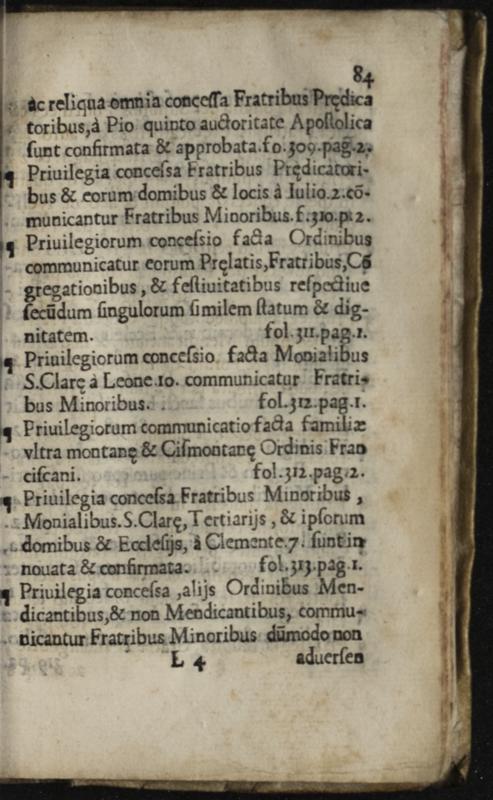 84
ac reliqua omnia concessa Fratribus Prędica
toribus, à Pio quinto auctoritate Apostolica
sunt confirmata & approbata. fo. 309. pag. 2.
¶ Priuilegia concessa Fratribus Prędicatori-
bus & eorum domibus & locis à Iulio. 2. cō-
municantur Fratribus Minoribus. f. 310. p. 2.
¶ Priuilegiorum concessio facta Ordinibus
communicatur eorum Pręlatis, Fratribus, Cō
gregationibus, & festiuitatibus respectiue
secūdum singulorum similem statum & dig-
nitatem. fol. 311. pag. 1.
¶ Priuilegiorum concessio facta Monialibus
S. Clarę à Leone. 10. communicatur Fratri-
bus Minoribus. fol. 312. pag. 1.
¶ Priuilegiorum communicatio facta familiæ
vltra montanę & Cismontanę Ordinis Fran
ciscani. fol. 312. pag. 2.
¶ Priuilegia concessa Fratribus Minoribus,
Monialibus. S. Clarę, Tertiarijs, & ipsorum
domibus & Ecclesijs, à Clemente. 7. sunt in
nouata & confirmata. fol. 313. pag. 1.
¶ Priuilegia concessa, alijs Ordinibus Men-
dicantibus, & non Mendicantibus, commu-
nicantur Fratribus Minoribus dūmodo non
L 4 aduersen